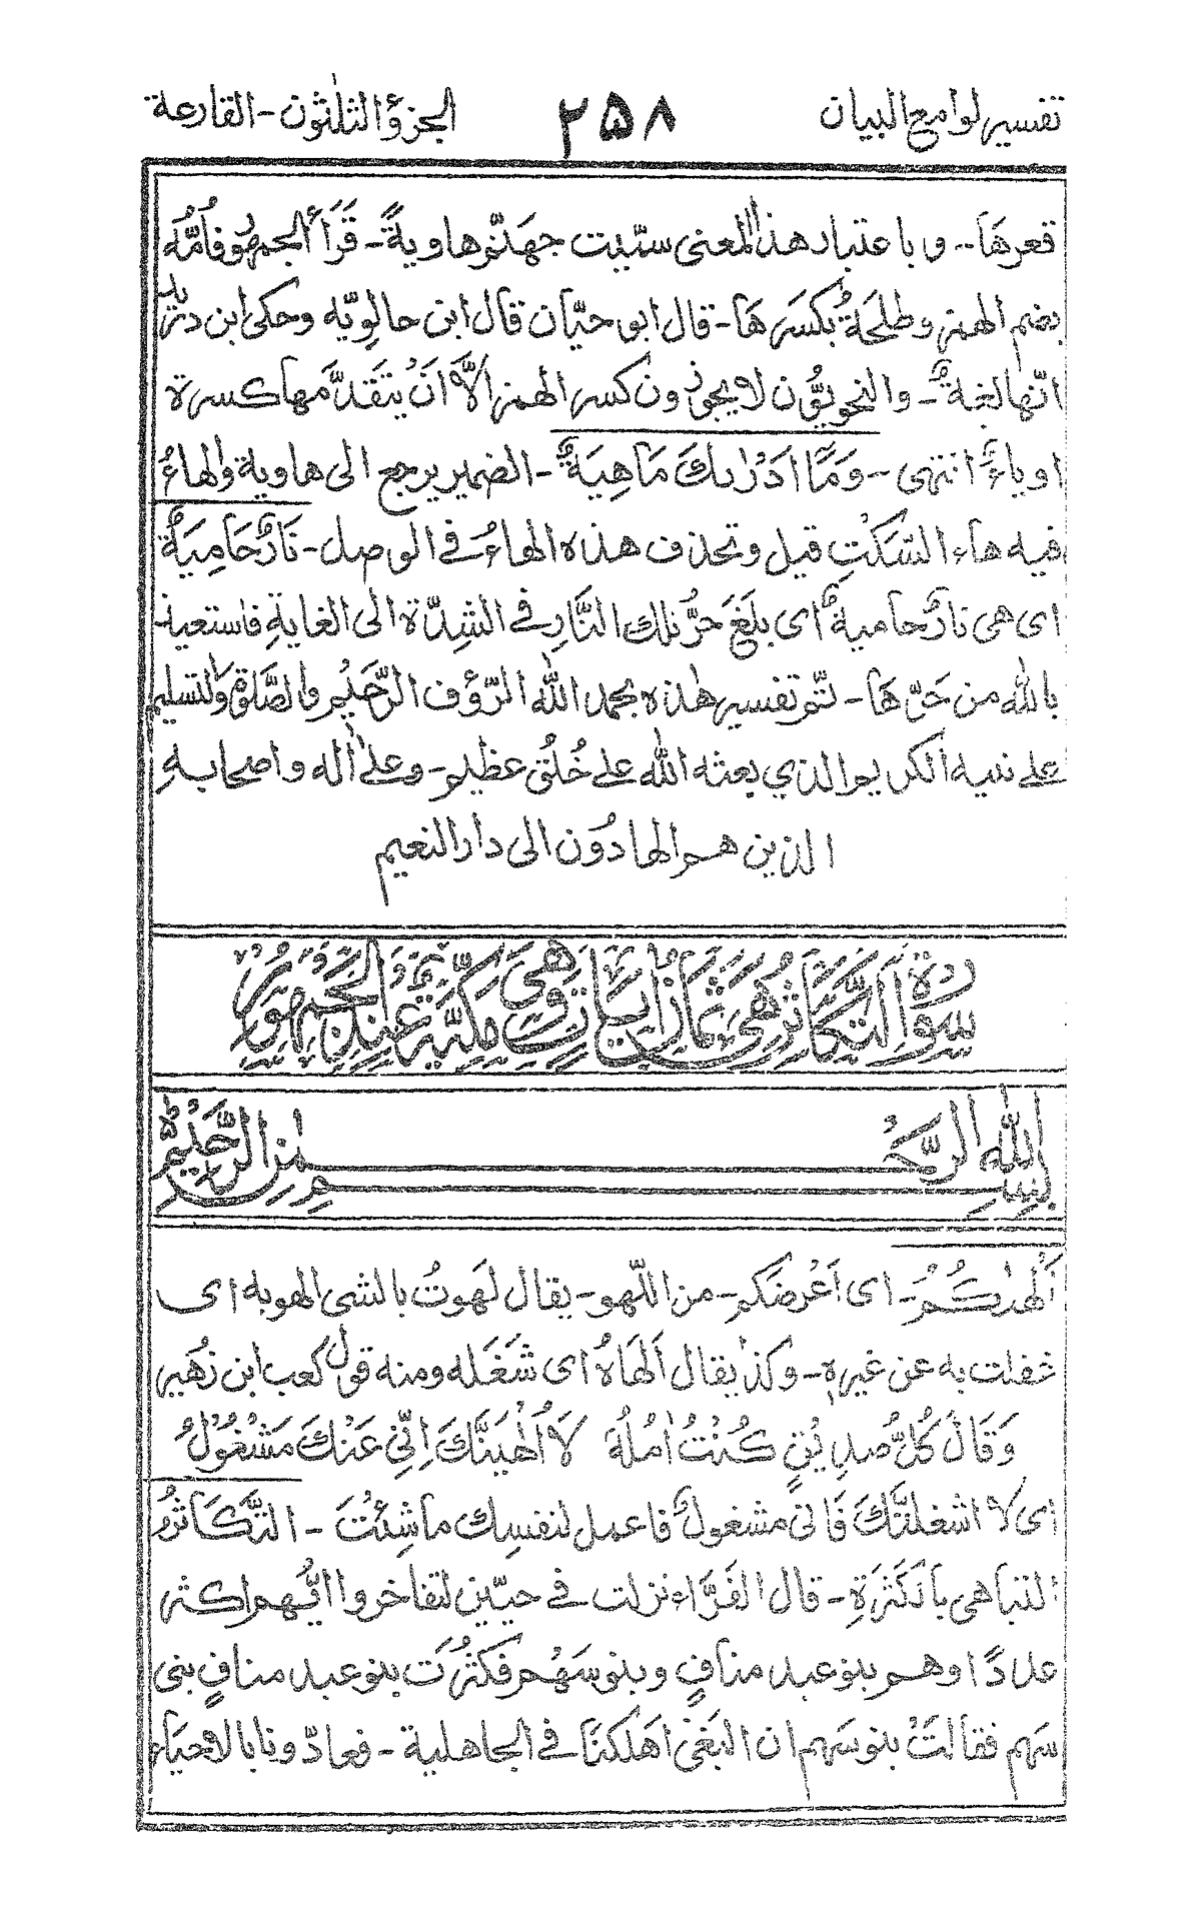 تفسير لوامع البيان ٢٥٨ الجزؤ الثلٰثون - القارعة
قعرهَا - وباعتبار هذا المعنى سمّيت جهنّم هاويةً - قَرَأَ الجمهور فاُمُّه
بضم الهمز وطلحَةُ بكسَرهَا - قال ابو حيّان قال ابن خالوِيّه وحكى ابن دريد
انّها لغة - والنحويّون لا يجوزون كسر الهمز الّا اَنْ يتَقَدَّمها كسرة
او ياءٌ انتهى - وَمَا اَدْرٰىكَ مَاهِيَهْ - الضمير يرجع الى هاوية والهاءُ
فيه هاء السَكْتِ قيل وتحذف هذه الهاءُ فى الوصل - نَارٌ حَامِيَةٌ
اى هى نارٌ حامية اى بلَغَ حرُّ تلك النَّارِ فى الشِدَّة الى الغايةِ فاستعيذ
بالله من حَرّهَا - تمّ تفسير هٰذه بحمد الله الرّؤف الرّحيم والصَّلوة والتسليم
على نبيه الكريم الذي بعثه الله على خُلُق عظيم - وعلىٰ اٰله واصحابهِ
الذين هم الهادُون الى دار النعيم
سورة التكاثر هى ثمان اٰيات وهى مكيّة عند الجمهور
بِسْمِ اللهِ الرَّحْمٰنِ الرَّحِيْمِ
اَلْهٰىكُمْ - اى اَعْرضَكم - من اللّهو - يقال لَهوتُ بالشى الهوبه اى
شفلت به عن غيرهٖ - وكذا يقال اَلْهَاهُ اى شَغَله ومنه قول كعب ابن زُهير
وَقَالَ كُلُّ صدِيْقٍ كُنْتُ اٰمُلُهٗ لَا اُلْهِيَنَّكَ اِنِّىْ عَنْكَ مَشْغُوْلُ
اى لا اشغلنَّكَ فَانى مشغول فاعمل لنفسِك ماشِئْتَ - التَّكَاثُرُ
التباهى بالكَثرَةِ - قال الفَرَّاء نزلت فى حيّين تفاخروا ايُّهم اكثر
عددًا وهم بنو عبد منافٍ وبنو سَهْم فكثُرَت بنو عبد منافٍ بنى
سهم فقالَتْ بنو سَهم ان البَغىَ اهلكنَا فى الجاهلية - فعادّونا بالاحيَاء